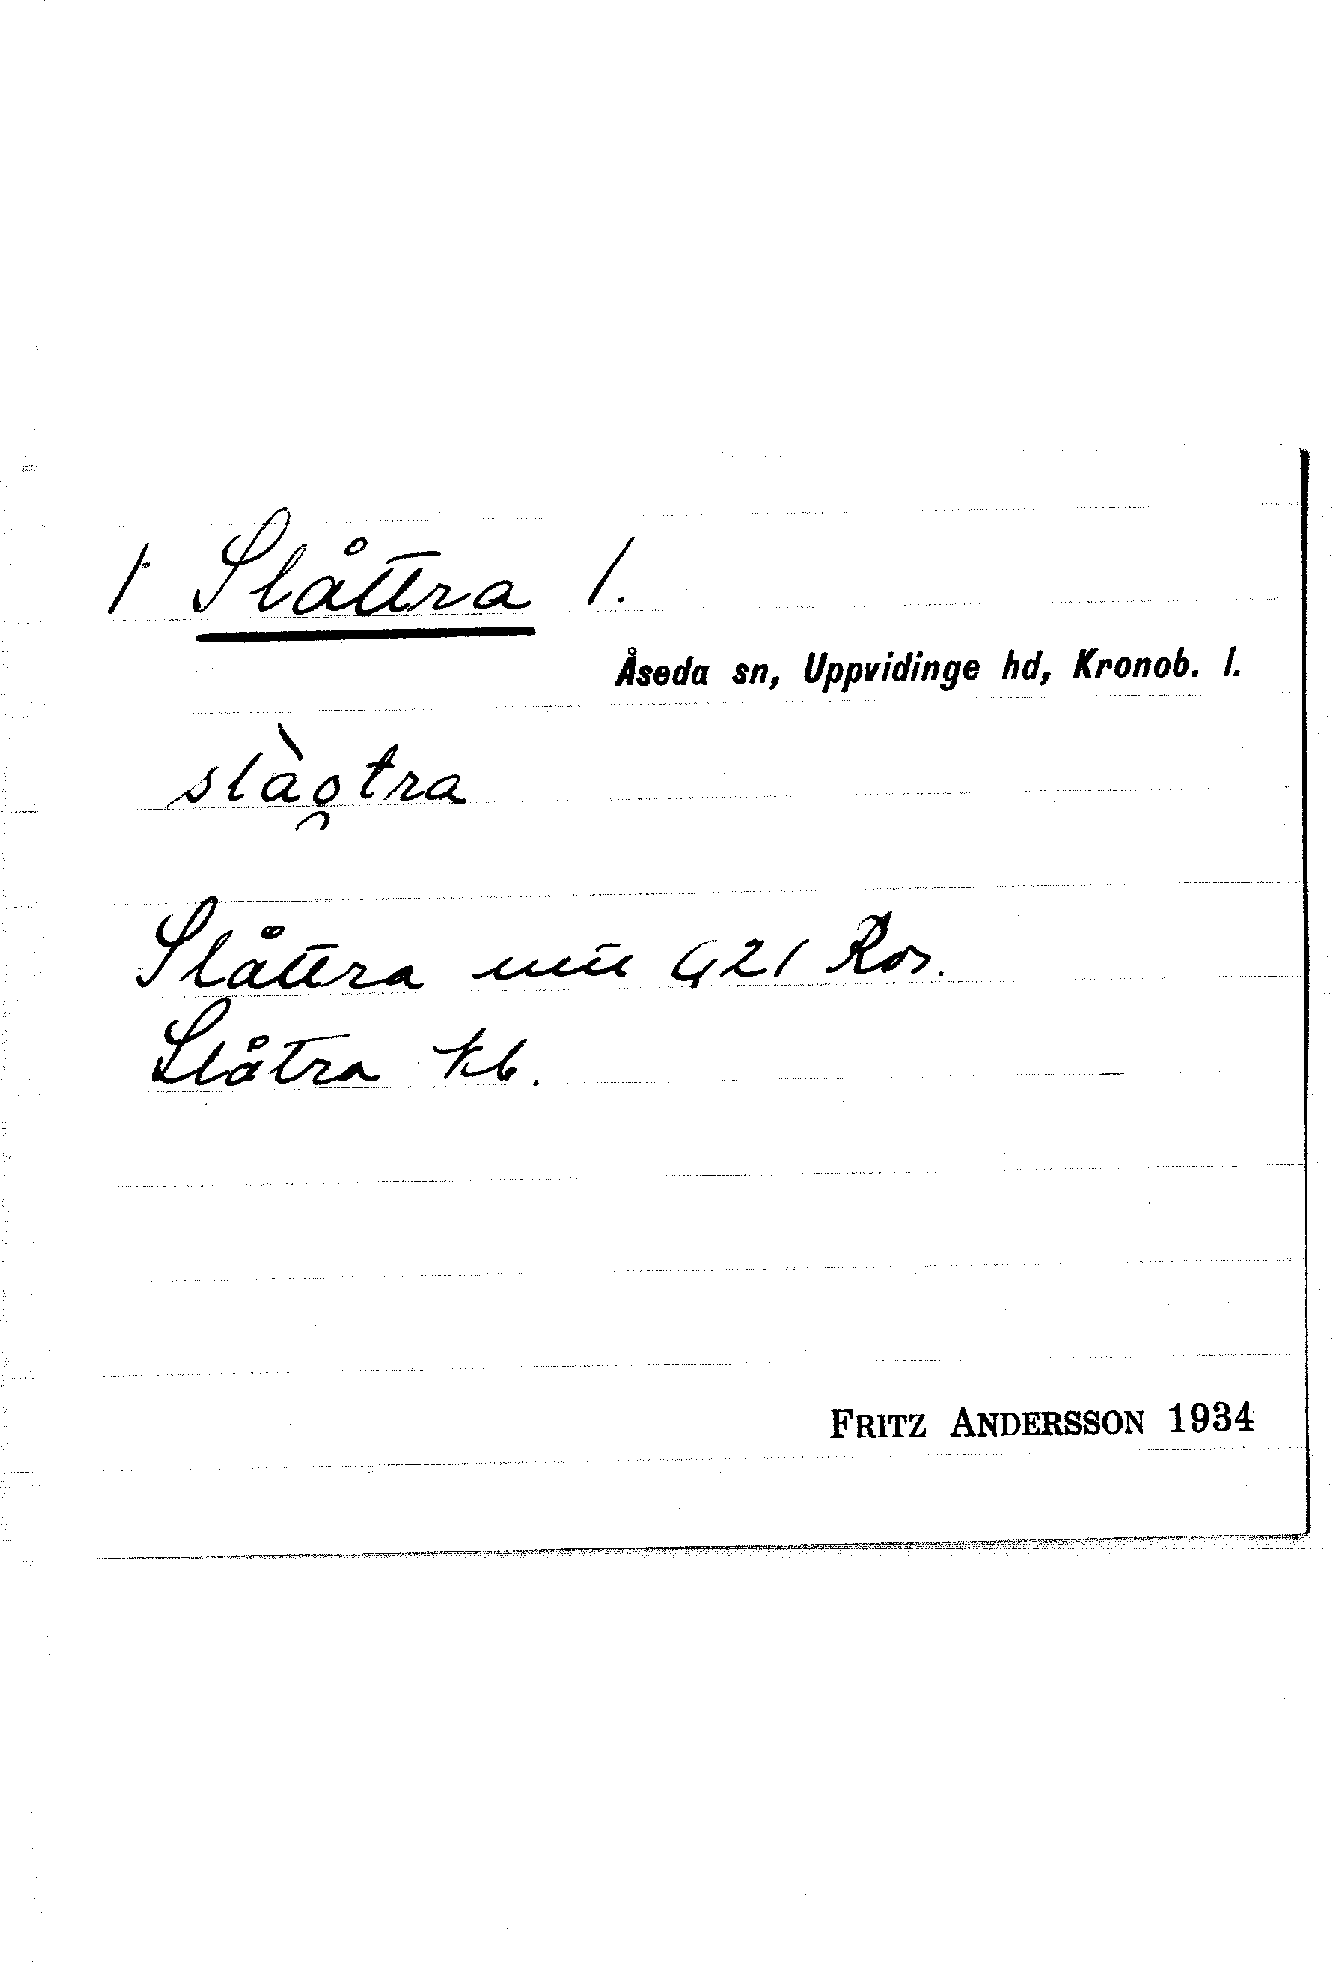 1 Slåttra 1.
Åseda sn, Uppvidinge hd, Kronob. l.
slào̯tra
Slåttra G21 Ros.
Slåtra kb.
FRITZ ANDERSSON 1934